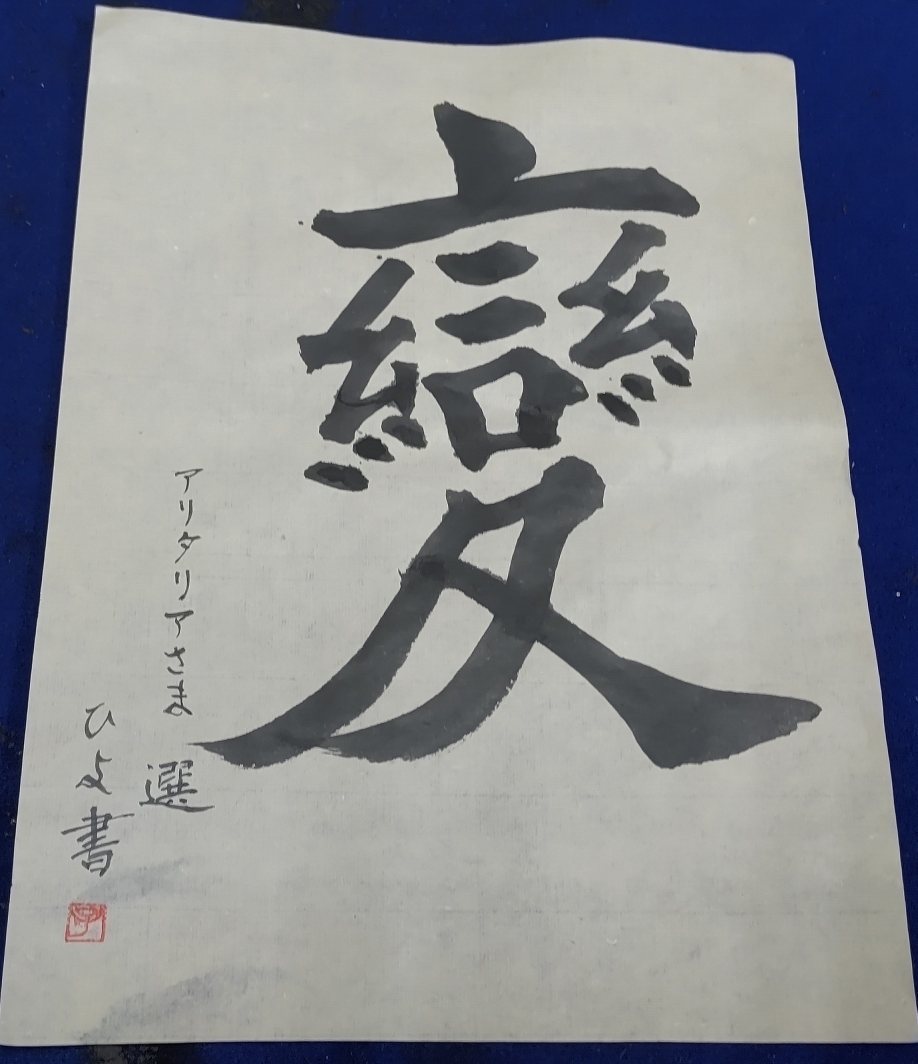 變
アリタリアさま 選
書